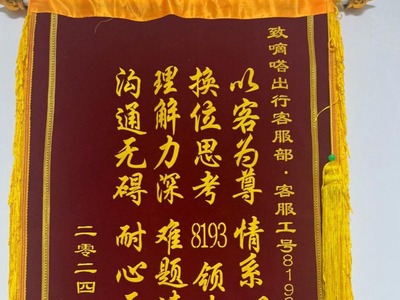 致嘀嗒出行客服部·客服工号819
以客为尊 情系
换位思考 8193 领
理解力深 难题
沟通无碍 耐心
二零二四